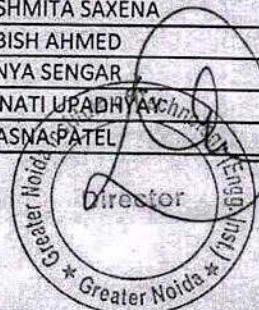 SHMITA SAXENA
BISH AHMED
NYA SENGAR
NATI UPADHYAY
ASNA PATEL
Greater Noida
(Engg. Inst.)
Director
* Greater Noida *